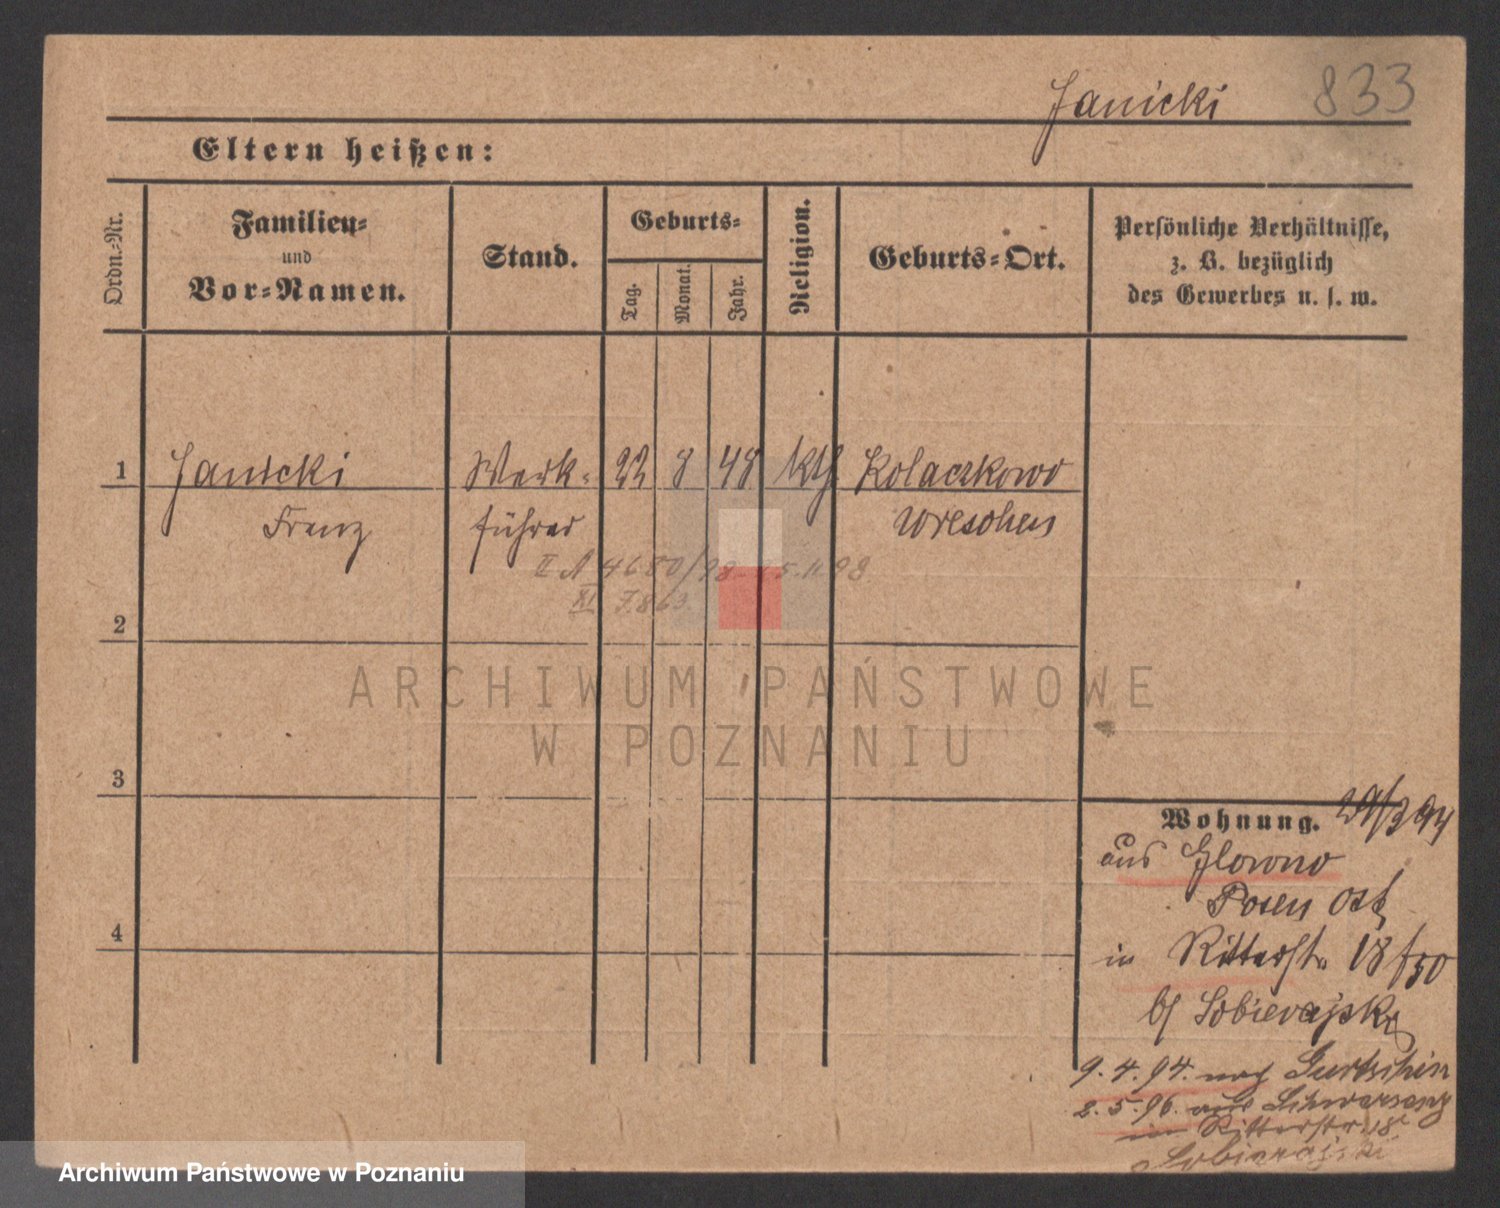 Janicki 833
Eltern heißen:
Ordn.-Nr.
Familien-
und
Vor-Namen.
Stand.
Geburts-
Tag.
Monat.
Jahr.
Religion.
Geburts-Ort.
Persönliche Verhältnisse,
z. B. bezüglich
des Gewerbes u. s. w.
1 Janicki Werk- 22 8 48 kth Kolaczkowo
Franz führer Wreschen
II A 4680/98 - 5.11.98
XI F.863
2
3
4
Wohnung. 29/3 94
aus Glowno
Posen Ost
in Ritterstr. 18
b/ Sobierajski
9.4.94. nach Gurtschin
2.5.96. aus Schwersenz
in Ritterstr. 18
Sobierajski
ARCHIWUM PAŃSTWOWE
W POZNANIU
Archiwum Państwowe w Poznaniu